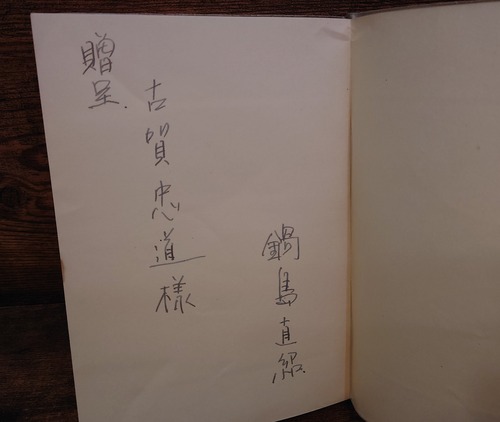 贈呈.
古賀忠道様
鍋島直紹.